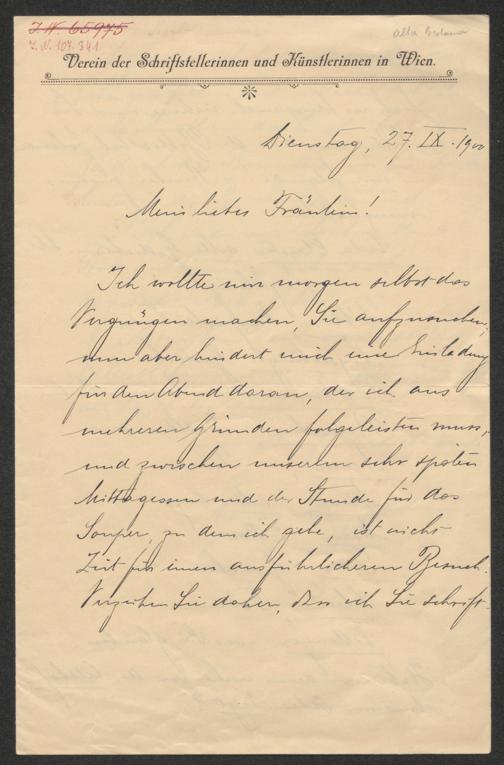 J.N. 65975
J.N. 107.341
Verein der Schriftstellerinnen und Künstlerinnen in Wien.
Dienstag, 27. IX. 1900
Mein liebes Fräulein!
Ich wollte mir morgen selbst das
Vergnügen machen, Sie aufzusuchen;
nun aber hindert mich eine Einladung
für den Abend daran, der ich aus
mehreren Gründen folgeleisten muss,
und zwischen unserem sehr späten
Mittagessen und der Stunde für das
Souper, zu dem ich gehe, ist nicht
Zeit für einen ausführlicheren Besuch.
Verzeihen Sie daher, dass ich Sie schrift-